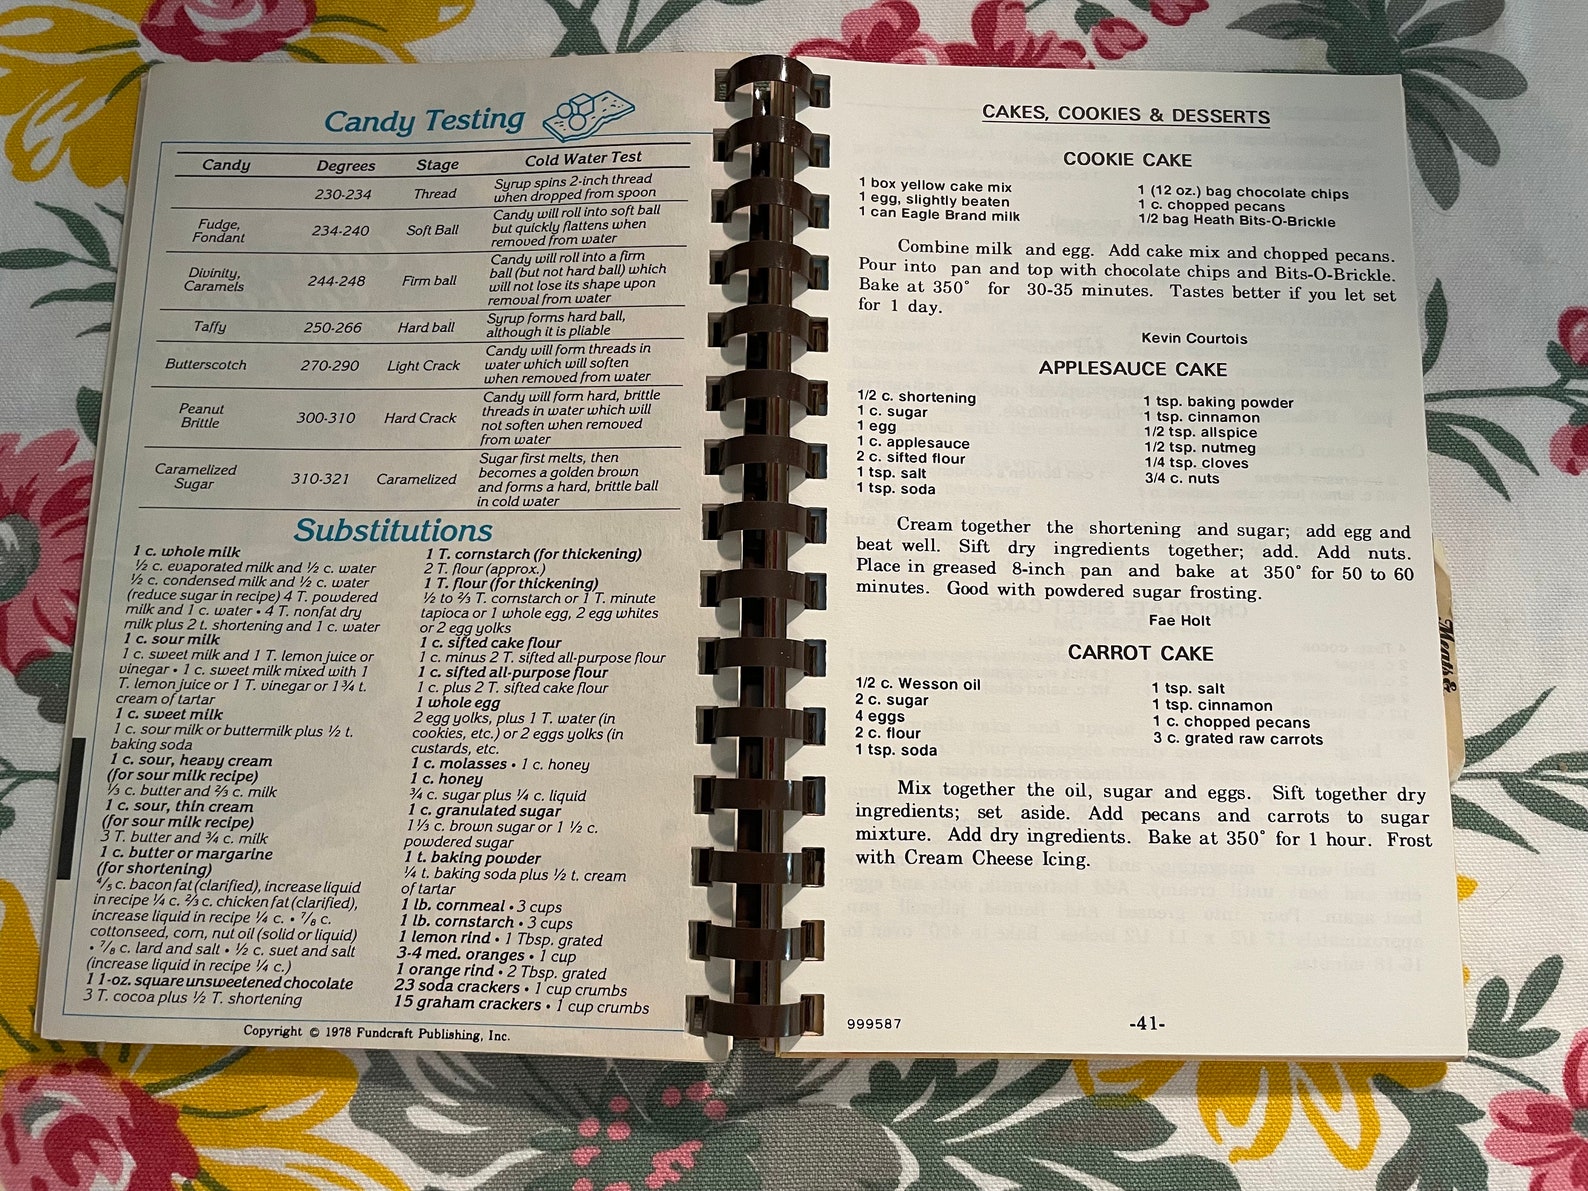 Candy Testing
Candy Degrees Stage Cold Water Test
230-234 Thread Syrup spins 2-inch thread
when dropped from spoon
Fudge,
Fondant 234-240 Soft Ball Candy will roll into soft ball
but quickly flattens when
removed from water
Divinity,
Caramels 244-248 Firm ball Candy will roll into a firm
ball (but not hard ball) which
will not lose its shape upon
removal from water
Taffy 250-266 Hard ball Syrup forms hard ball,
although it is pliable
Butterscotch 270-290 Light Crack Candy will form threads in
water which will soften
when removed from water
Peanut
Brittle 300-310 Hard Crack Candy will form hard, brittle
threads in water which will
not soften when removed
from water
Caramelized
Sugar 310-321 Caramelized Sugar first melts, then
becomes a golden brown
and forms a hard, brittle ball
in cold water
Substitutions
1 c. whole milk
½ c. evaporated milk and ½ c. water
½ c. condensed milk and ½ c. water
(reduce sugar in recipe) 4 T. powdered
milk and 1 c. water • 4 T. nonfat dry
milk plus 2 t. shortening and 1 c. water
1 c. sour milk
1 c. sweet milk and 1 T. lemon juice or
vinegar • 1 c. sweet milk mixed with 1
T. lemon juice or 1 T. vinegar or 1¾ t.
cream of tartar
1 c. sweet milk
1 c. sour milk or buttermilk plus ½ t.
baking soda
1 c. sour, heavy cream
(for sour milk recipe)
⅓ c. butter and ⅔ c. milk
1 c. sour, thin cream
(for sour milk recipe)
3 T. butter and ¾ c. milk
1 c. butter or margarine
(for shortening)
⅘ c. bacon fat (clarified), increase liquid
in recipe ¼ c. ⅔ c. chicken fat (clarified),
increase liquid in recipe ¼ c. • ⅞ c.
cottonseed, corn, nut oil (solid or liquid)
• ⅞ c. lard and salt • ½ c. suet and salt
(increase liquid in recipe ¼ c.)
1 1-oz. square unsweetened chocolate
3 T. cocoa plus ½ T. shortening
1 T. cornstarch (for thickening)
2 T. flour (approx.)
1 T. flour (for thickening)
½ to ⅔ T. cornstarch or 1 T. minute
tapioca or 1 whole egg, 2 egg whites
or 2 egg yolks
1 c. sifted cake flour
1 c. minus 2 T. sifted all-purpose flour
1 c. sifted all-purpose flour
1 c. plus 2 T. sifted cake flour
1 whole egg
2 egg yolks, plus 1 T. water (in
cookies, etc.) or 2 eggs yolks (in
custards, etc.
1 c. molasses • 1 c. honey
1 c. honey
¾ c. sugar plus ¼ c. liquid
1 c. granulated sugar
1⅓ c. brown sugar or 1 ½ c.
powdered sugar
1 t. baking powder
¼ t. baking soda plus ½ t. cream
of tartar
1 lb. cornmeal • 3 cups
1 lb. cornstarch • 3 cups
1 lemon rind • 1 Tbsp. grated
3-4 med. oranges • 1 cup
1 orange rind • 2 Tbsp. grated
23 soda crackers • 1 cup crumbs
15 graham crackers • 1 cup crumbs
Copyright © 1978 Fundcraft Publishing, Inc.
CAKES, COOKIES & DESSERTS
COOKIE CAKE
1 box yellow cake mix
1 egg, slightly beaten
1 can Eagle Brand milk
1 (12 oz.) bag chocolate chips
1 c. chopped pecans
1/2 bag Heath Bits-O-Brickle
Combine milk and egg. Add cake mix and chopped pecans.
Pour into pan and top with chocolate chips and Bits-O-Brickle.
Bake at 350° for 30-35 minutes. Tastes better if you let set
for 1 day.
Kevin Courtois
APPLESAUCE CAKE
1/2 c. shortening
1 c. sugar
1 egg
1 c. applesauce
2 c. sifted flour
1 tsp. salt
1 tsp. soda
1 tsp. baking powder
1 tsp. cinnamon
1/2 tsp. allspice
1/2 tsp. nutmeg
1/4 tsp. cloves
3/4 c. nuts
Cream together the shortening and sugar; add egg and
beat well. Sift dry ingredients together; add. Add nuts.
Place in greased 8-inch pan and bake at 350° for 50 to 60
minutes. Good with powdered sugar frosting.
Fae Holt
CARROT CAKE
1/2 c. Wesson oil
2 c. sugar
4 eggs
2 c. flour
1 tsp. soda
1 tsp. salt
1 tsp. cinnamon
1 c. chopped pecans
3 c. grated raw carrots
Mix together the oil, sugar and eggs. Sift together dry
ingredients; set aside. Add pecans and carrots to sugar
mixture. Add dry ingredients. Bake at 350° for 1 hour. Frost
with Cream Cheese Icing.
999587
-41-